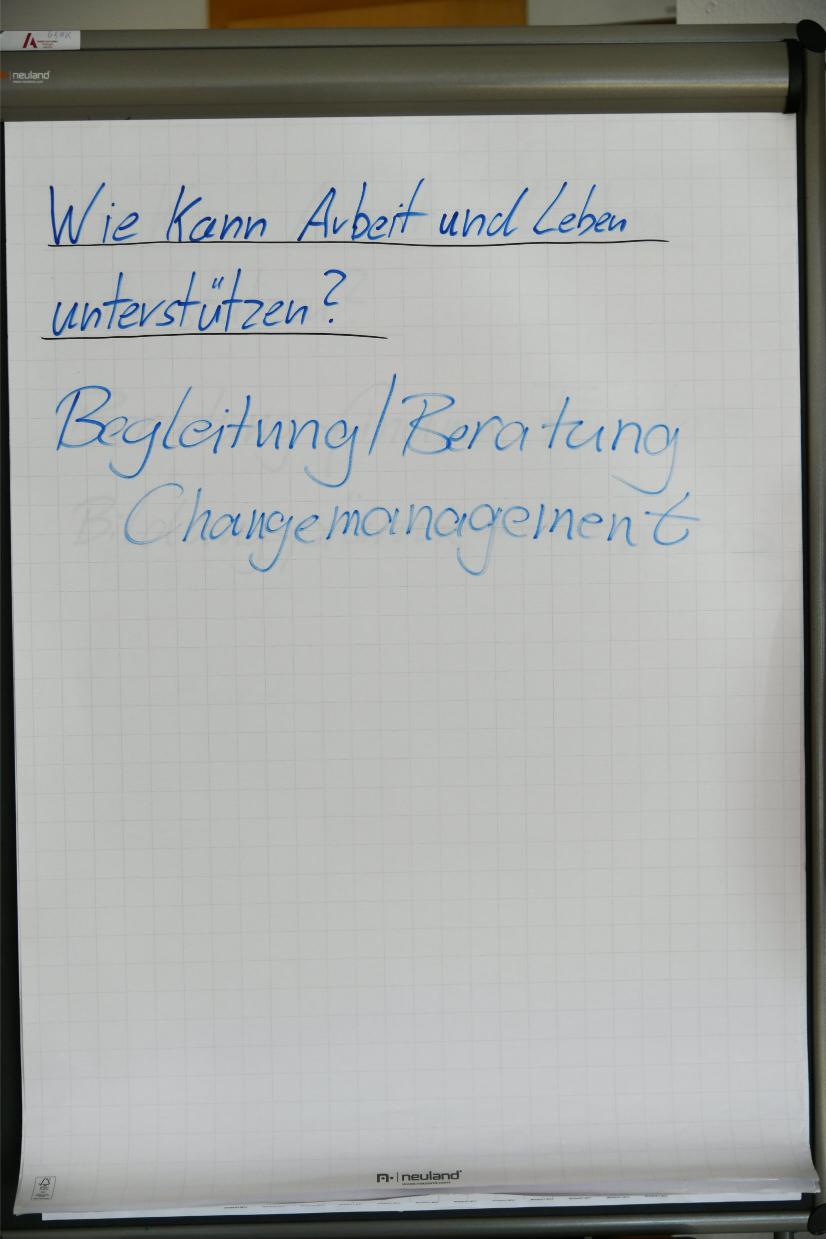 neuland
Wie kann Arbeit und Leben
unterstützen?
Begleitung/Beratung
Changemanagement
neuland